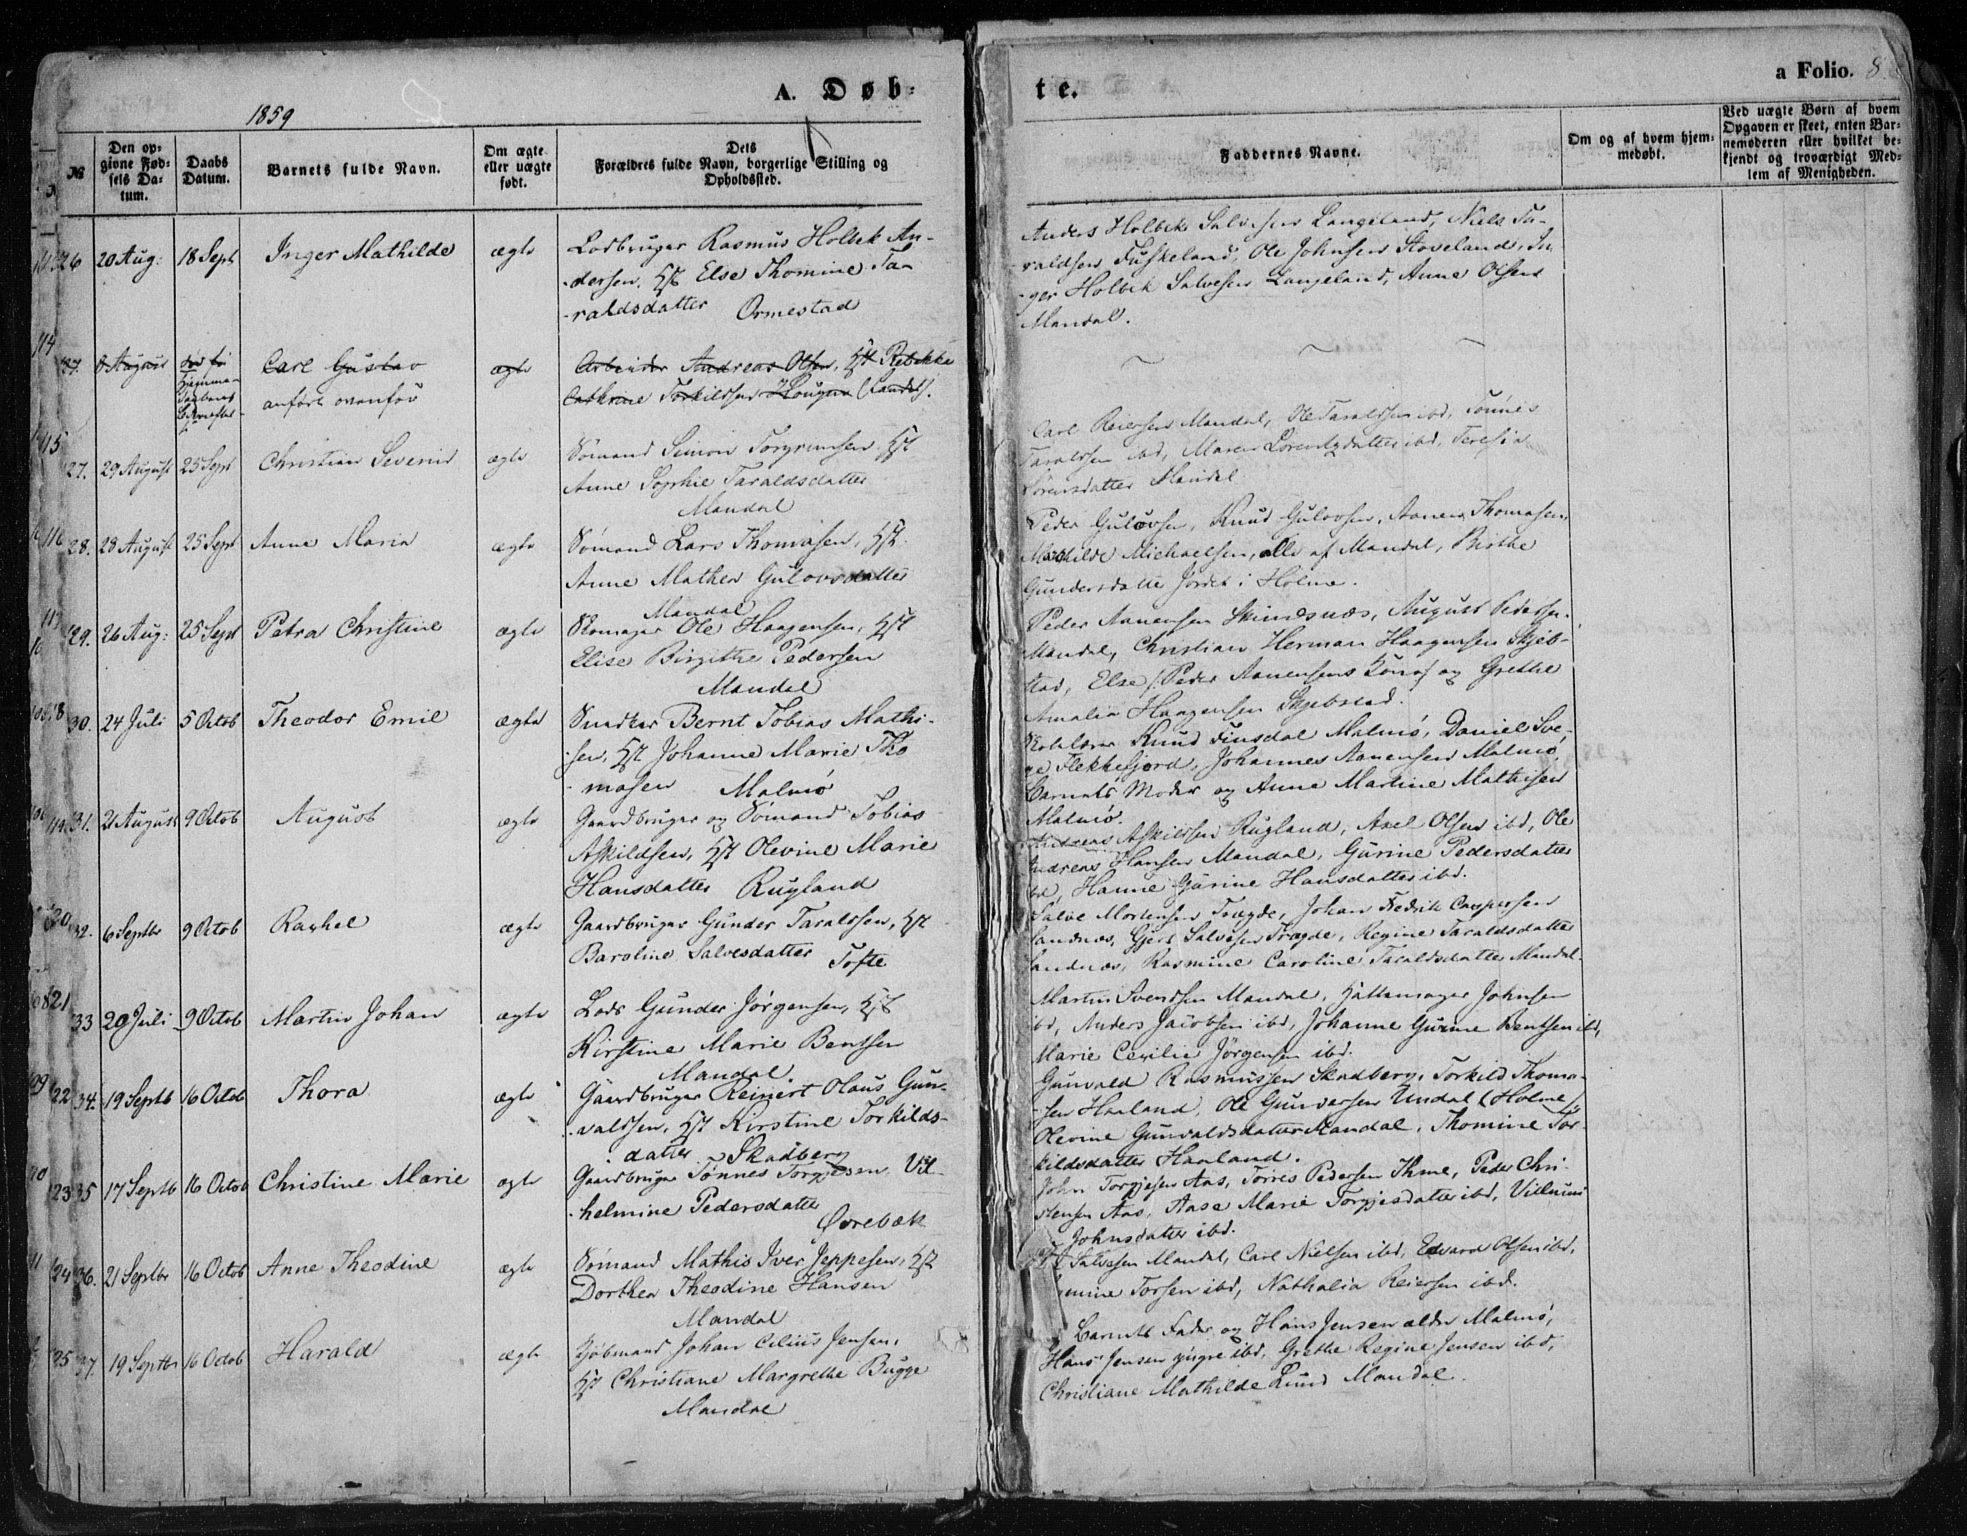 A. Døb-
te.
a Folio. 8
1859
№
Den op-
givne Fød-
sels Da-
tum.
Daabs
Datum.
Barnets fulde Navn.
Om ægte
eller uægte
født.
Dets
Forældres fulde Navn, borgerlige Stilling og
Opholdssted.
Faddernes Navne.
Om og af hvem hjem-
medøbt.
Ved uægte Børn af hvem
Opgaven er skeet, enten Bar-
nemoderen eller hvilket be-
kjendt og troværdigt Med-
lem af Menigheden.
26 20 Aug: 18 Sept Inger Mathilde ægte Lodbruger Rasmus Holbek An-
dersen, Hst Else Thomine Ta-
raldsdatter Ormestad
Anders Holbek Salvesen Langeland, Niels Ta-
raldsen Fuskeland, Ole Johnsen Stoveland, In-
ger Holbek Salvesen Langeland, Anne Olsen
Mandal.
114
27. 8 August Carl Gustav ægte Arbeider Andreas Olsen, Hst Rebekke
anført ovenfor Cathrine Torkildsen Hougen (Landet).
115
27. 29 August 25 Sept Christian Severin ægte Sømand Simon Torgrimsen, Hst
Anne Sophie Taraldsdatter
Mandal
Carl Reiersen Mandal, Ole Taraldsen ibd, Tønnes
Taraldsen ibd, Maren Lorentzdatter ibd, Teresia
Sørensdatter Mandal
116
28. 28 August 25 Sept Anne Maria ægte Sømand Lars Thomasen, Hst
Anne Mathea Gulovsdatter
Mandal
Peder Gulovsen, Knud Gulovsen, Aanen Thomasen,
Mathilde Michaelsen, alle af Mandal, Birthe
Gundersdatter Jordet i Holme.
117
29. 26 Aug: 25 Sept Petra Christine ægte Skomager Ole Haagensen, Hst
Elise Birgithe Pedersen
Mandal
Peder Aanensen Skinsnæs, August Pedersen
Mandal, Christian Herman Haagensen Skjeb-
stad, Else (Peder Aanensens Kone) og Grethe
Amalia Haagensen Skjebstad.
30. 24 Juli 5 Octob Theodor Emil ægte Snedker Bernt Tobias Mathi-
sen, Hst Johanne Marie Tho
masen Malmø
Skolelærer Knud Finsdal Malmø, Daniel Sve-
ge Flekkefjord, Johannes Aanensen Malmø,
Barnets Moder og Anne Martine Mathisen
Malmø.
119
31. 21 August 9 Octob August ægte Gaardbruger og Sømand Tobias
Askildsen, Hst Olevine Marie
Hansdatter Rugland
Andreas Askildsen Rugland, Axel Olsen ibd, Ole
Andreas Hansen Mandal, Gurine Pedersdatter
ibd, Hanne Gurine Hansdatter ibd.
120
32. 6 Septbr 9 Octob Rachel ægte Gaardbruger Gunder Taraldsen, Hst
Baroline Salvesdatter Tofte
Salve Mortensen Trægde, Johan Fredrik Caspersen
Sandnæs, Gjert Salvesen Trægde, Regine Taraldsdatter
Sandnæs, Rasmine Caroline Taraldsdatter Mandal.
121
33 20 Juli 9 Octob Martin Johan ægte Lods Gunder Jørgensen, Hst
Kirstine Marie Bentsen
Mandal.
Martin Svendsen Mandal, Hattemager Johnsen
ibd, Anders Jacobsen ibd, Johanne Gurine Bentsen ibd,
Marie Cecilie Jørgensen ibd.
122
34. 19 Septb 16 Octob Thora ægte Gaardbruger Reinert Olaus Gun-
valdsen, Hst Kirstine Torkilds-
datter Skadberg
Gunvald Rasmussen Skadberg, Torkild Thoma-
sen Haaland, Ole Gunvorsen Undal (Holme)
Olevine Gunvaldsdatter Mandal, Thomine Tor-
kildsdatter Haaland.
123
35 17 Septb 16 Octob Christine Marie ægte Gaardbruger Tønnes Torgjesen Vil-
helmine Pedersdatter
Ørebæk
John Torgjesen Aas, Torres Pedersen Ihme, Peder Chri-
stensen Aas, Aase Marie Torgjesdatter ibd, Villumine
Johnsdatter ibd.
124
36. 21 Septbr 16 Octob Anne Theodine ægte Sømand Mathis Iver Jeppesen, Hst
Dorthea Theodine Hansen
Mandal
Salvesen Mandal, Carl Nielsen ibd, Edvard Olsen ibd,
Torsen ibd, Nathalia Reiersen ibd.
125
37. 19 Septbr 16 Octob Harald ægte Kjøbmand Johan Cilius Jensen,
Hst Christiane Margrethe Bugge
Mandal
Barnets Fader og Hans Jensen ældre Malmø,
Hans Jensen yngre ibd, Grethe Regine Jensen ibd,
Christiane Mathilde Lund Mandal.